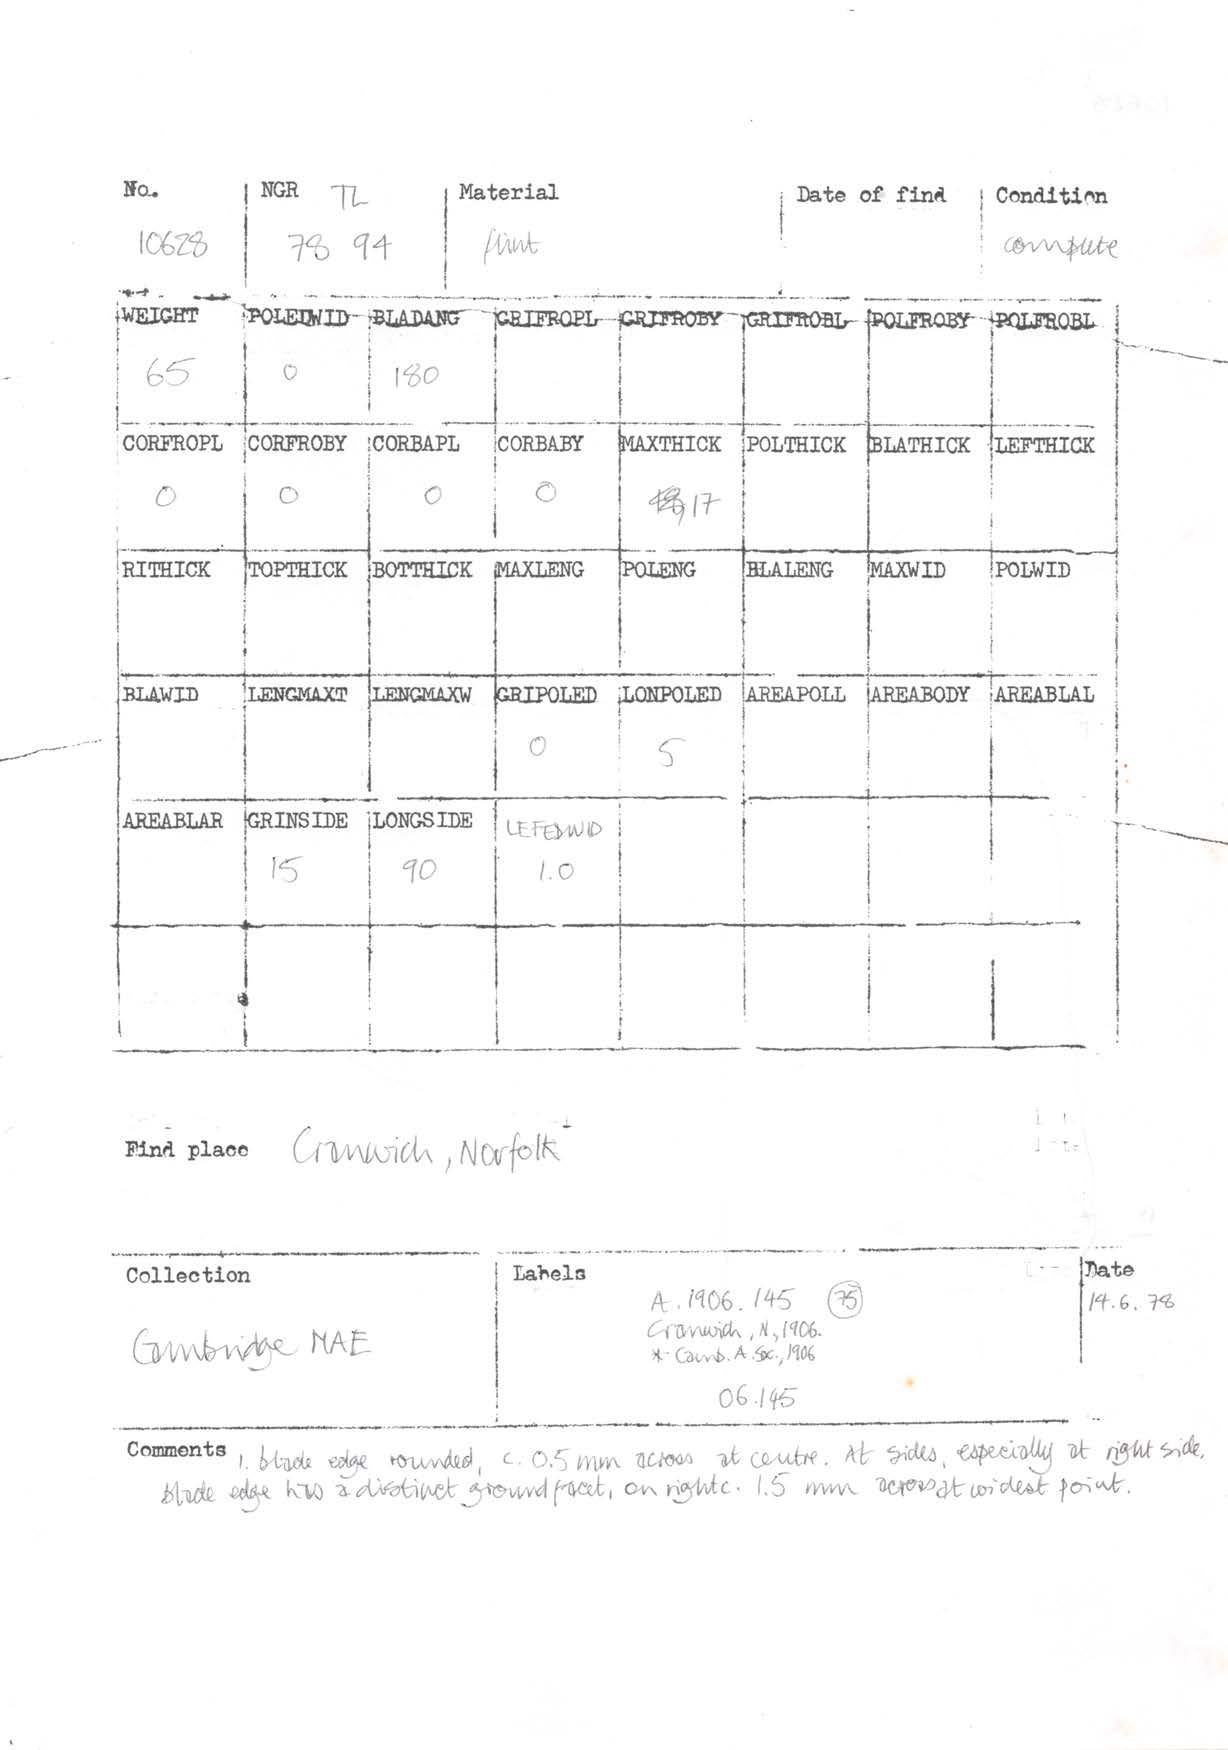 No. NGR TL Material Date of find Condition
10628 78 94 flint complete
WEIGHT POLEDWID BLADANG GRIFROPL GRIFROBY GRIFROBL POLFROBY POLFROBL
65 0 180
CORFROPL CORFROBY CORBAPL CORBABY MAXTHICK POLTHICK BLATHICK LEFTHICK
0 0 0 0 17
RITHICK TOPTHICK BOTTHICK MAXLENG POLENG BLALENG MAXWID POLWID
BLAWID LENGMAXT LENGMAXW GRIPOLED LONPOLED AREAPOLL AREABODY AREABLAL
0 5
AREABLAR GRINSIDE LONGSIDE LEFEDWID
15 90 1.0
Find place Cranwich, Norfolk
Collection Labels Date
A.1906.145 75 14.6.78
Cranwich, N, 1906.
Cambridge MAE
* Camb. A. Soc., 1906
06.145
Comments 1. blade edge rounded, c. 0.5 mm across at centre. At sides, especially at right side,
blade edge has a distinct ground facet, on right c. 1.5 mm across at widest point.